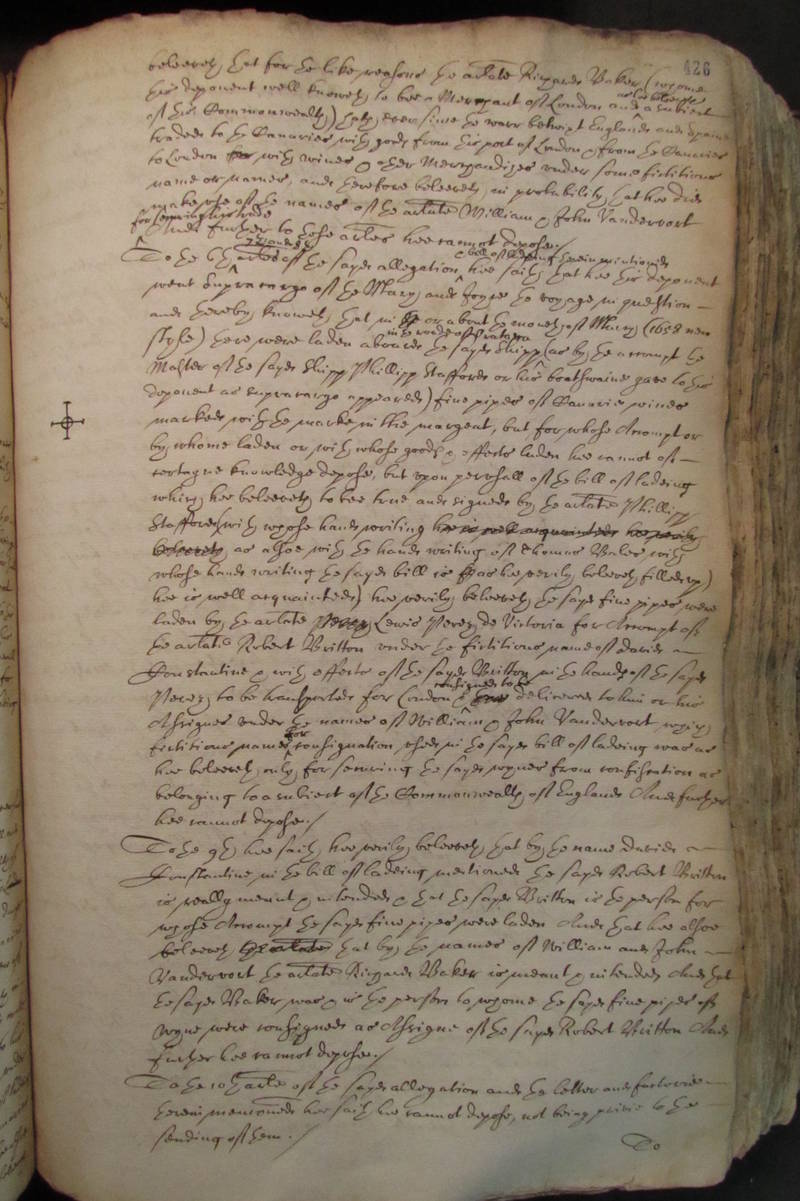 426
beleeveth that for the like reasons the arlate Richard Baker (whome
this deponent well knoweth to bee a Merchant of London and as hee beleeveth a subiect
of this Commonwealth) hath ever since the warr betwixt England and Spaine
traded to the Canaries with goods from this port of London & from the Canaries
to London with wines & other Merchandizes under some fictitious
name or names, and therefore beleeveth in probability that hee did
make use of the names of the arlate William & John Vandervort
for securing his trade
And further to these arles hee cannot depose./
To the 6th 7th and 8th arles of the sayd allegation & bill of lading therein mentioned hee saith that hee this deponent
went Supracargo of the Mary and Joyce the voyage in question
and thereby knoweth that in or about the moneth of May (1658 new
style) there were laden aboard the sayd Shipp in the roade of Oratava (as by the accompt the
Master of the sayd Shipp Phillipp Stafford or his boathswaine gave to this
deponent as supracargo appeared) five pipes of Canarie wines
marked with the marke in the margent, but for whose Accompt or
by whome laden or with whose goods & effects laden hee cannot of
certayne knowledge depose, but upon perusall of the bill of ladeing
which hee beleeveth to bee true and signed by the arlate Phillipp
Stafford (with whose hand writing hee is well acquainted hee verily
beleeveth as alsoe with the hand writing of Thomas Bales with
whose hand writing the sayd bill is (as hee verily beleeveth filled up)
hee is well acquainted) hee verily beleeveth the sayd five pipes were
laden by the arlate Perez Lewis Perez de Victoria for Accompt of
the arlate Robert Britton under the fictitious name of David
Constantine & with effects of the sayd Britton in the hands of the sayd
Perez to be transported for London & consigned to be delivered to him or his
Assignes under the names of William & John Vandervort which
fictitious names for consignation used in the sayd bill of ladeing was as
hee beleeveth only for securing the sayd wynes from confiscation as
belonging to a subiect of the Commonwealth of England And further
hee cannot depose./
To the 9th hee saith hee verily beleeveth that by the name David
Constantine in the bill of ladeing mentioned the sayd Robert Britton
is really meant & intended & that the sayd Britton is the person for
whose Accompt the sayd five pipes were laden And that hee alsoe
beleeveth the arlate that by the names of William and John
Vandervort the arlate Richard Baker is meant & intended And that
the sayd Baker was & is the person to whome the sayd five pipes of
wyne were consigned as Assigne of the sayd Robert Britton And
further hee cannot depose./
To the 10th arle of the sayd allegation and the letter and factorie
therein mentioned hee saith hee cannot depose, not being privie to the
sending of them./
To